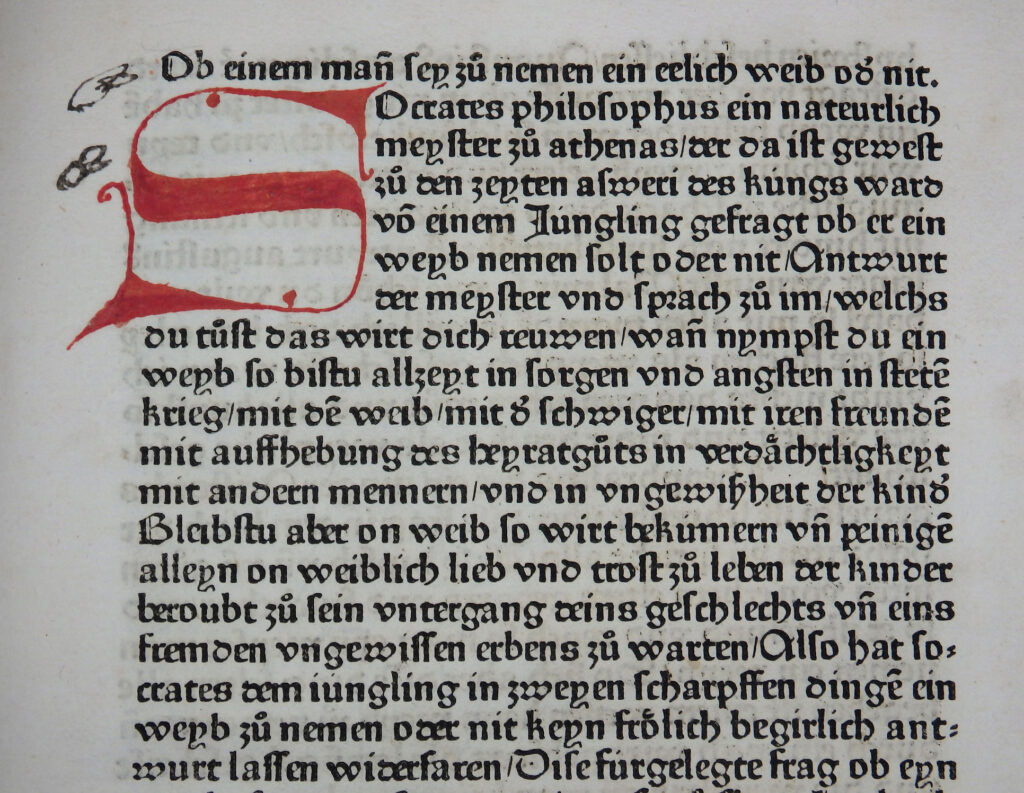 Ob einem mañ ſey zů nemen ein eelich weib od' nit.
SOcrates philoſophus ein nateurlich
meyſter zů athenas/der da iſt geweſt
zů den zeyten aſweri des kungs ward
võ einem Jungling gefragt ob er ein
weyb nemen ſolt oder nit/Antwurt
der meyſter vnd ſprach zů im/welchs
du tůſt das wirt dich reuwen/wañ nympſt du ein
weyb ſo biſtu allzeyt in ſorgen vnd angſten in ſtetẽ
krieg/mit dẽ weib/mit d' ſchwiger/mit iren freundẽ
mit auffhebung des heyratgůts in verdåchtligkeyt
mit andern mennern/vnd in vngewiſʒheit der kind'
Bleibſtu aber on weib ſo wirt bekumern vñ peinigẽ
alleyn on weiblich lieb vnd troſt zů leben der kinder
beroubt zů ſein vntergang deins geſchlechts vñ eins
fremden vngewiſſen erbens zů warten/Alſo hat ſo⸗
crates dem iungling in zweyen ſcharpffen dingẽ ein
weyb zů nemen oder nit keyn frőlich begirlich ant⸗
wurt laſſen widerfaren/Diſe furgelegte frag ob eyn